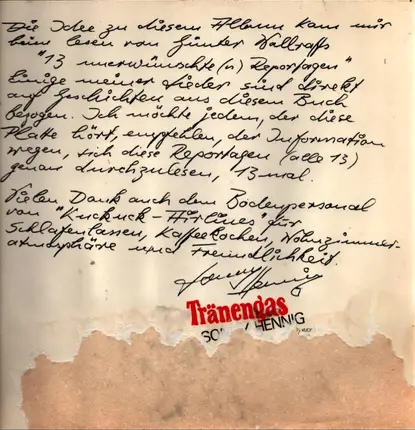 Die Idee zu diesem Album kam mir
beim lesen von Günter Wallraffs
"13 unerwünschte(n) Reportagen"
Einige meiner Lieder sind direkt
auf Geschichten aus diesem Buch
bezogen. Ich möchte jedem, der diese
Platte hört, empfehlen, der Information
wegen, sich diese Reportagen (alle 13)
genau durchzulesen, 13 mal.
Vielen Dank auch dem Bodenpersonal
von "Kuckuck-Airlines" für
Schlafenlassen, Kaffeekochen, Wohnzimmer-
atmosphäre und Freundlichkeit.
Sonny Hennig
Tränengas
HENNIG